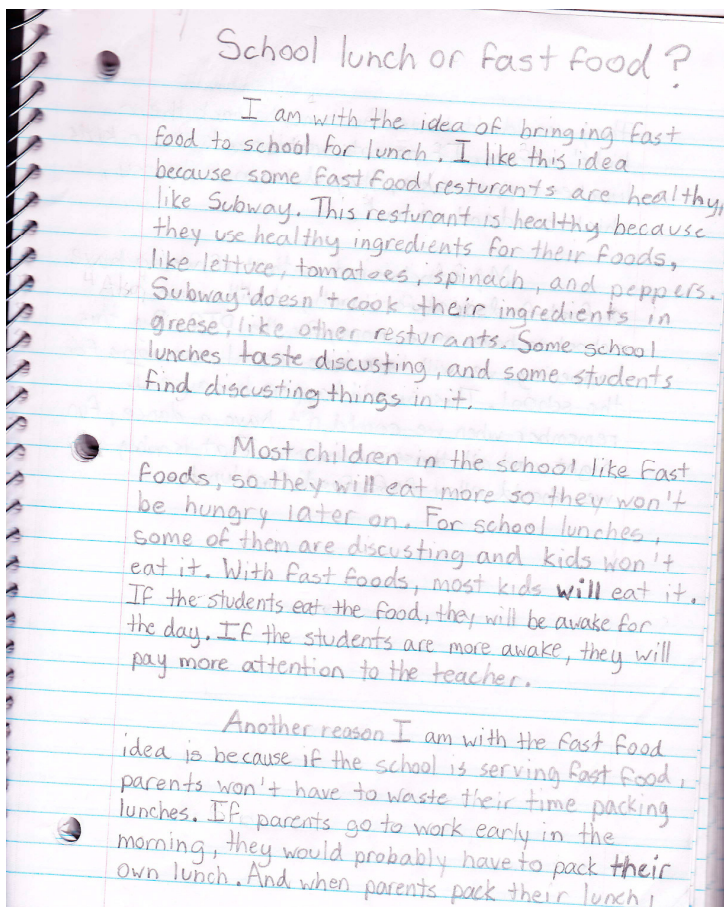 School lunch or fast food?
I am with the idea of bringing fast
food to school for lunch. I like this idea
because some fast food resturants are healthy,
like Subway. This resturant is healthy because
they use healthy ingredients for their foods,
like lettuce, tomatoes, spinach, and peppers.
Subway doesn't cook their ingredients in
greese, like other resturants. Some school
lunches taste discusting, and some students
find discusting things in it.
Most children in the school like fast
foods, so they will eat more so they won't
be hungry later on. For school lunches,
some of them are discusting and kids won't
eat it. With fast foods, most kids will eat it.
If the students eat the food, they will be awake for
the day. If the students are more awake, they will
pay more attention to the teacher.
Another reason I am with the fast food
idea is because if the school is serving fast food,
parents won't have to waste their time packing
lunches. If parents go to work early in the
morning, they would probably have to pack their
own lunch. And when parents pack their lunch,